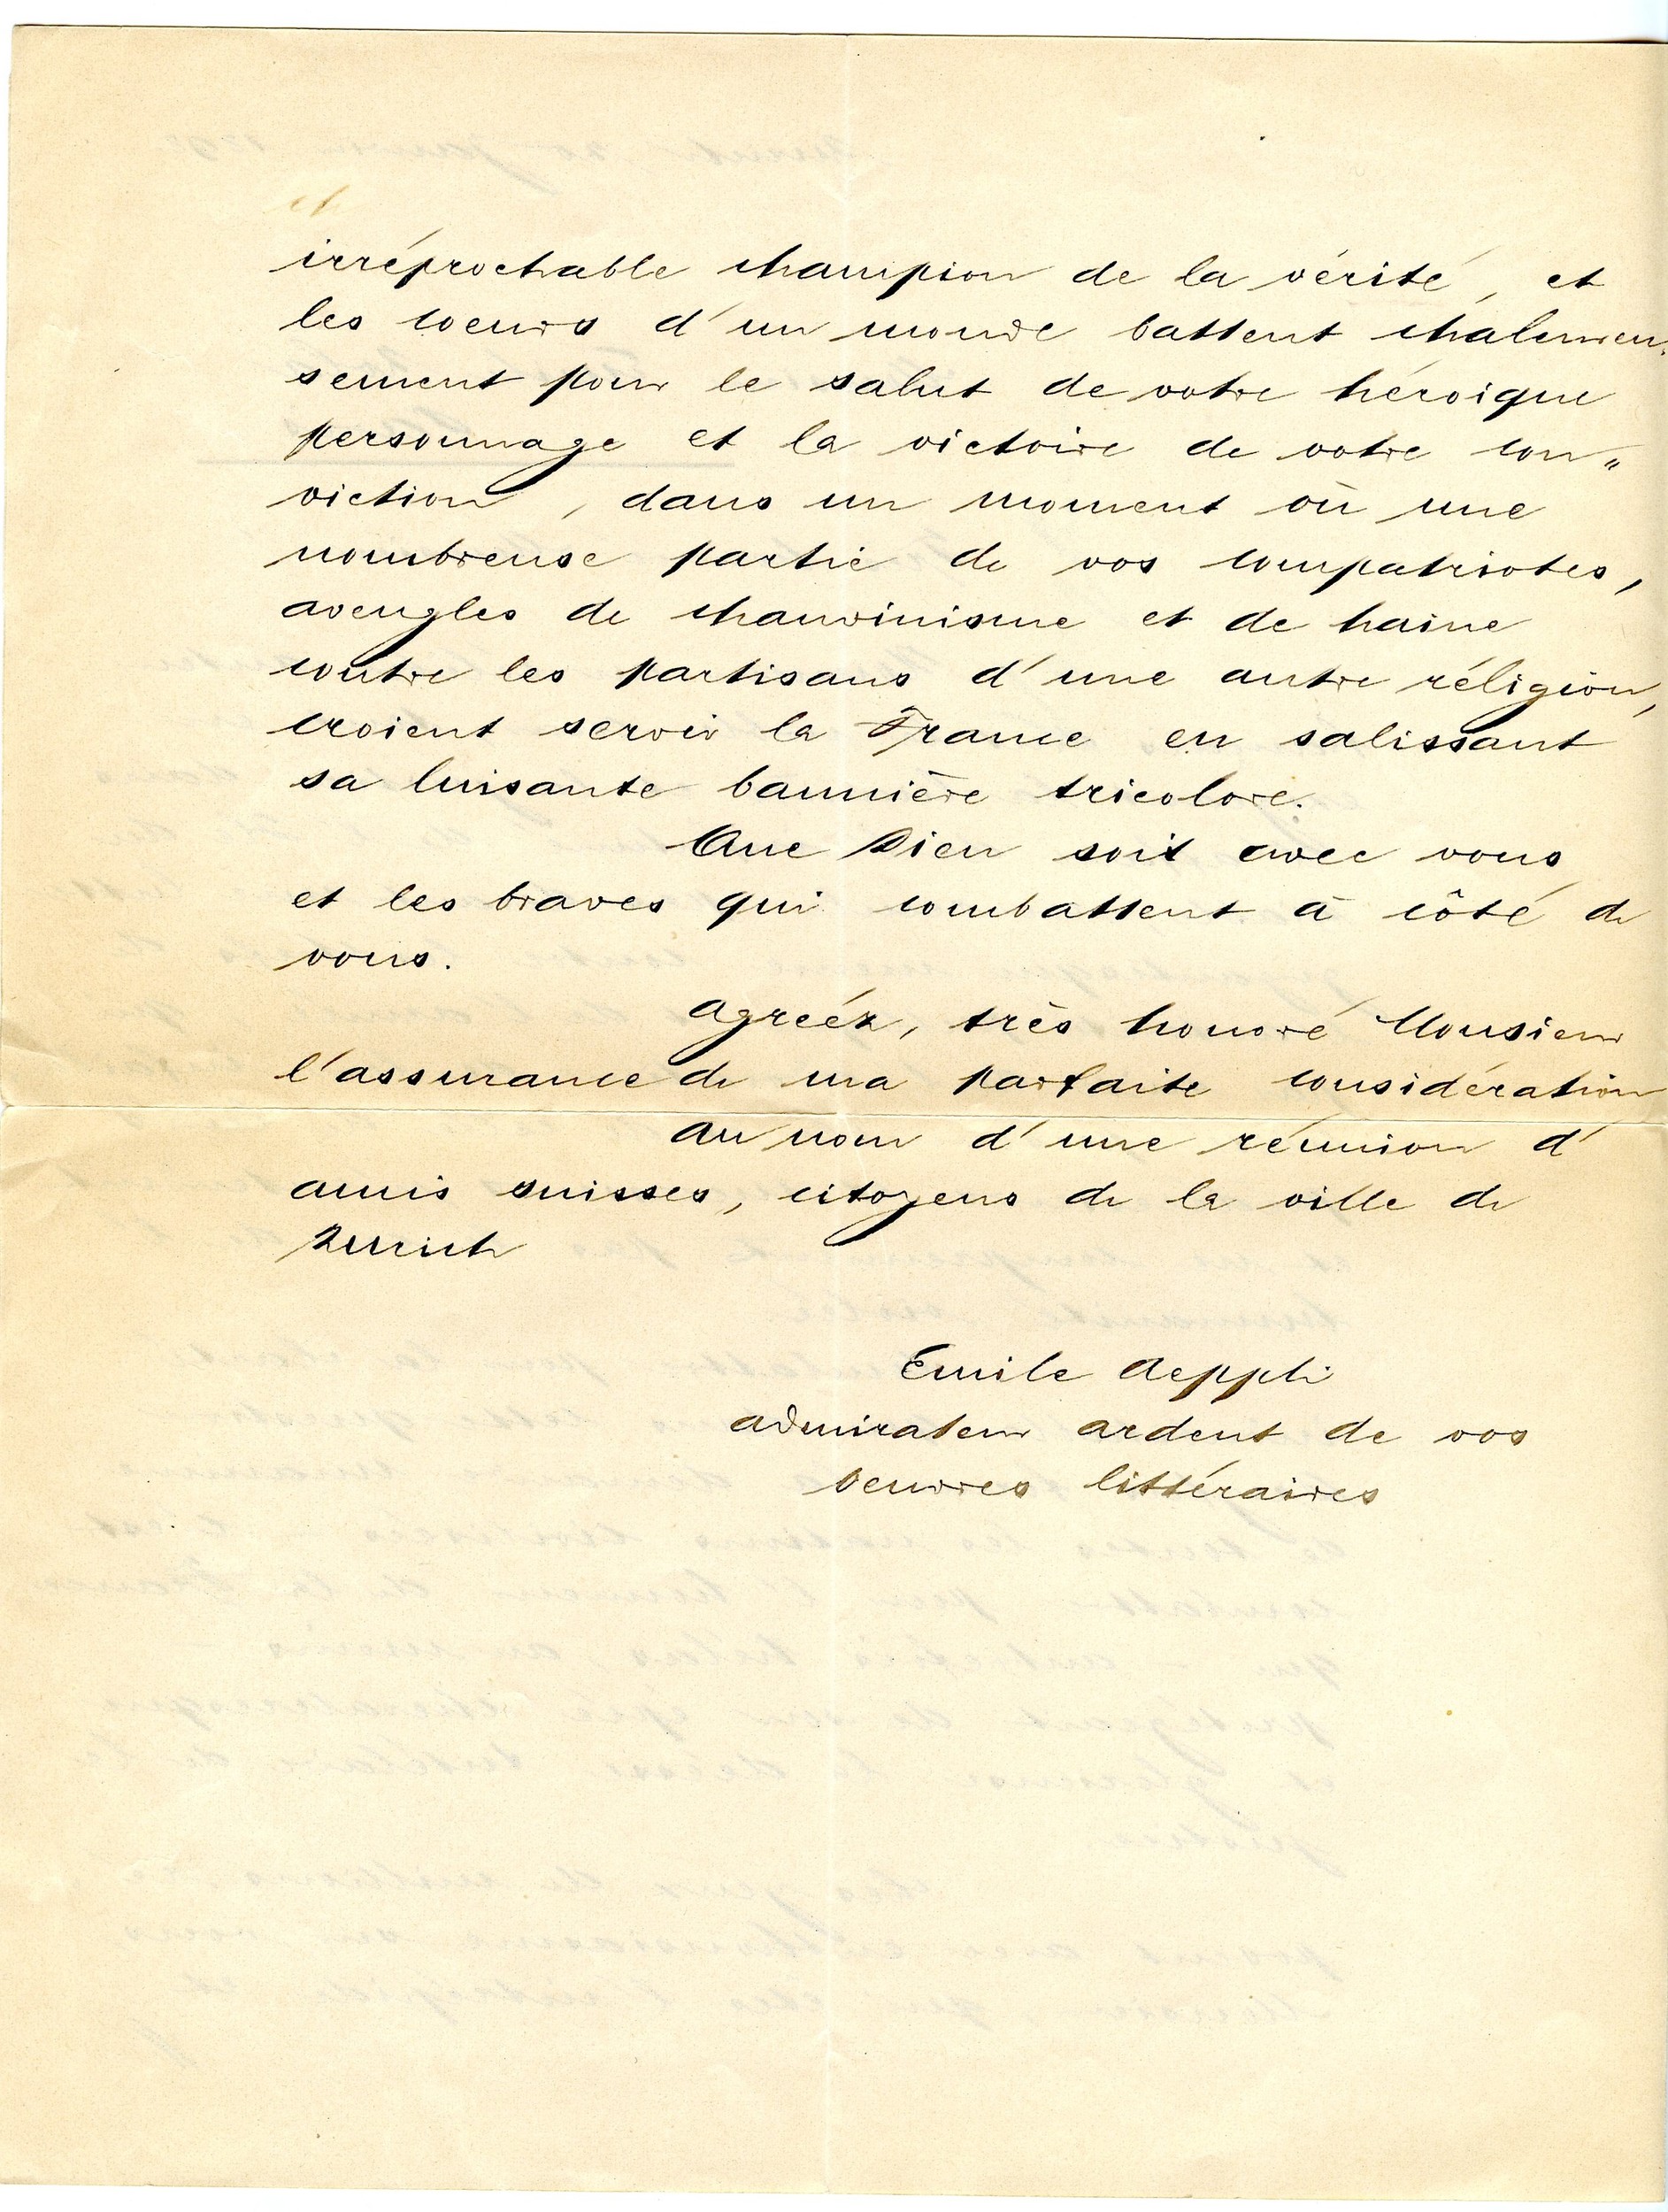 et
irréprochable champion de la vérité, et
les coeurs d'un monde battent chaleureu-
sement pour le salut de votre héroique
personnage et la victoire de votre con„
viction, dans un moment où une
nombreuse partie de vos compatriotes,
aveugles de chauvinisme et de haine
contre les partisans d'une autre réligion,
croient servir la France en salissant
sa luisante bannière tricolore.
Que Dieu soit avec vous
et les braves qui combattent à côté de
vous.
Agreéz, très honoré Monsieur
l'assurance de ma parfaite considération
au nom d'une réunion d'
amis suisses, citoyens de la ville de
Zurich
Emile Aeppli
admirateur ardent de vos
oeuvres littéraires